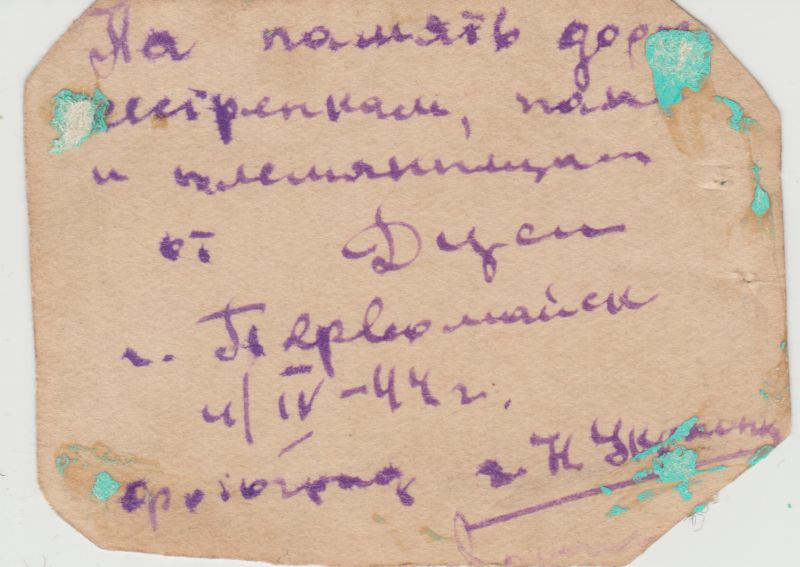 На память доро
сестренкам, пап
и племянницам
от Дуси
г. Первомайск
4/IV-44 г.
г. Н Украины